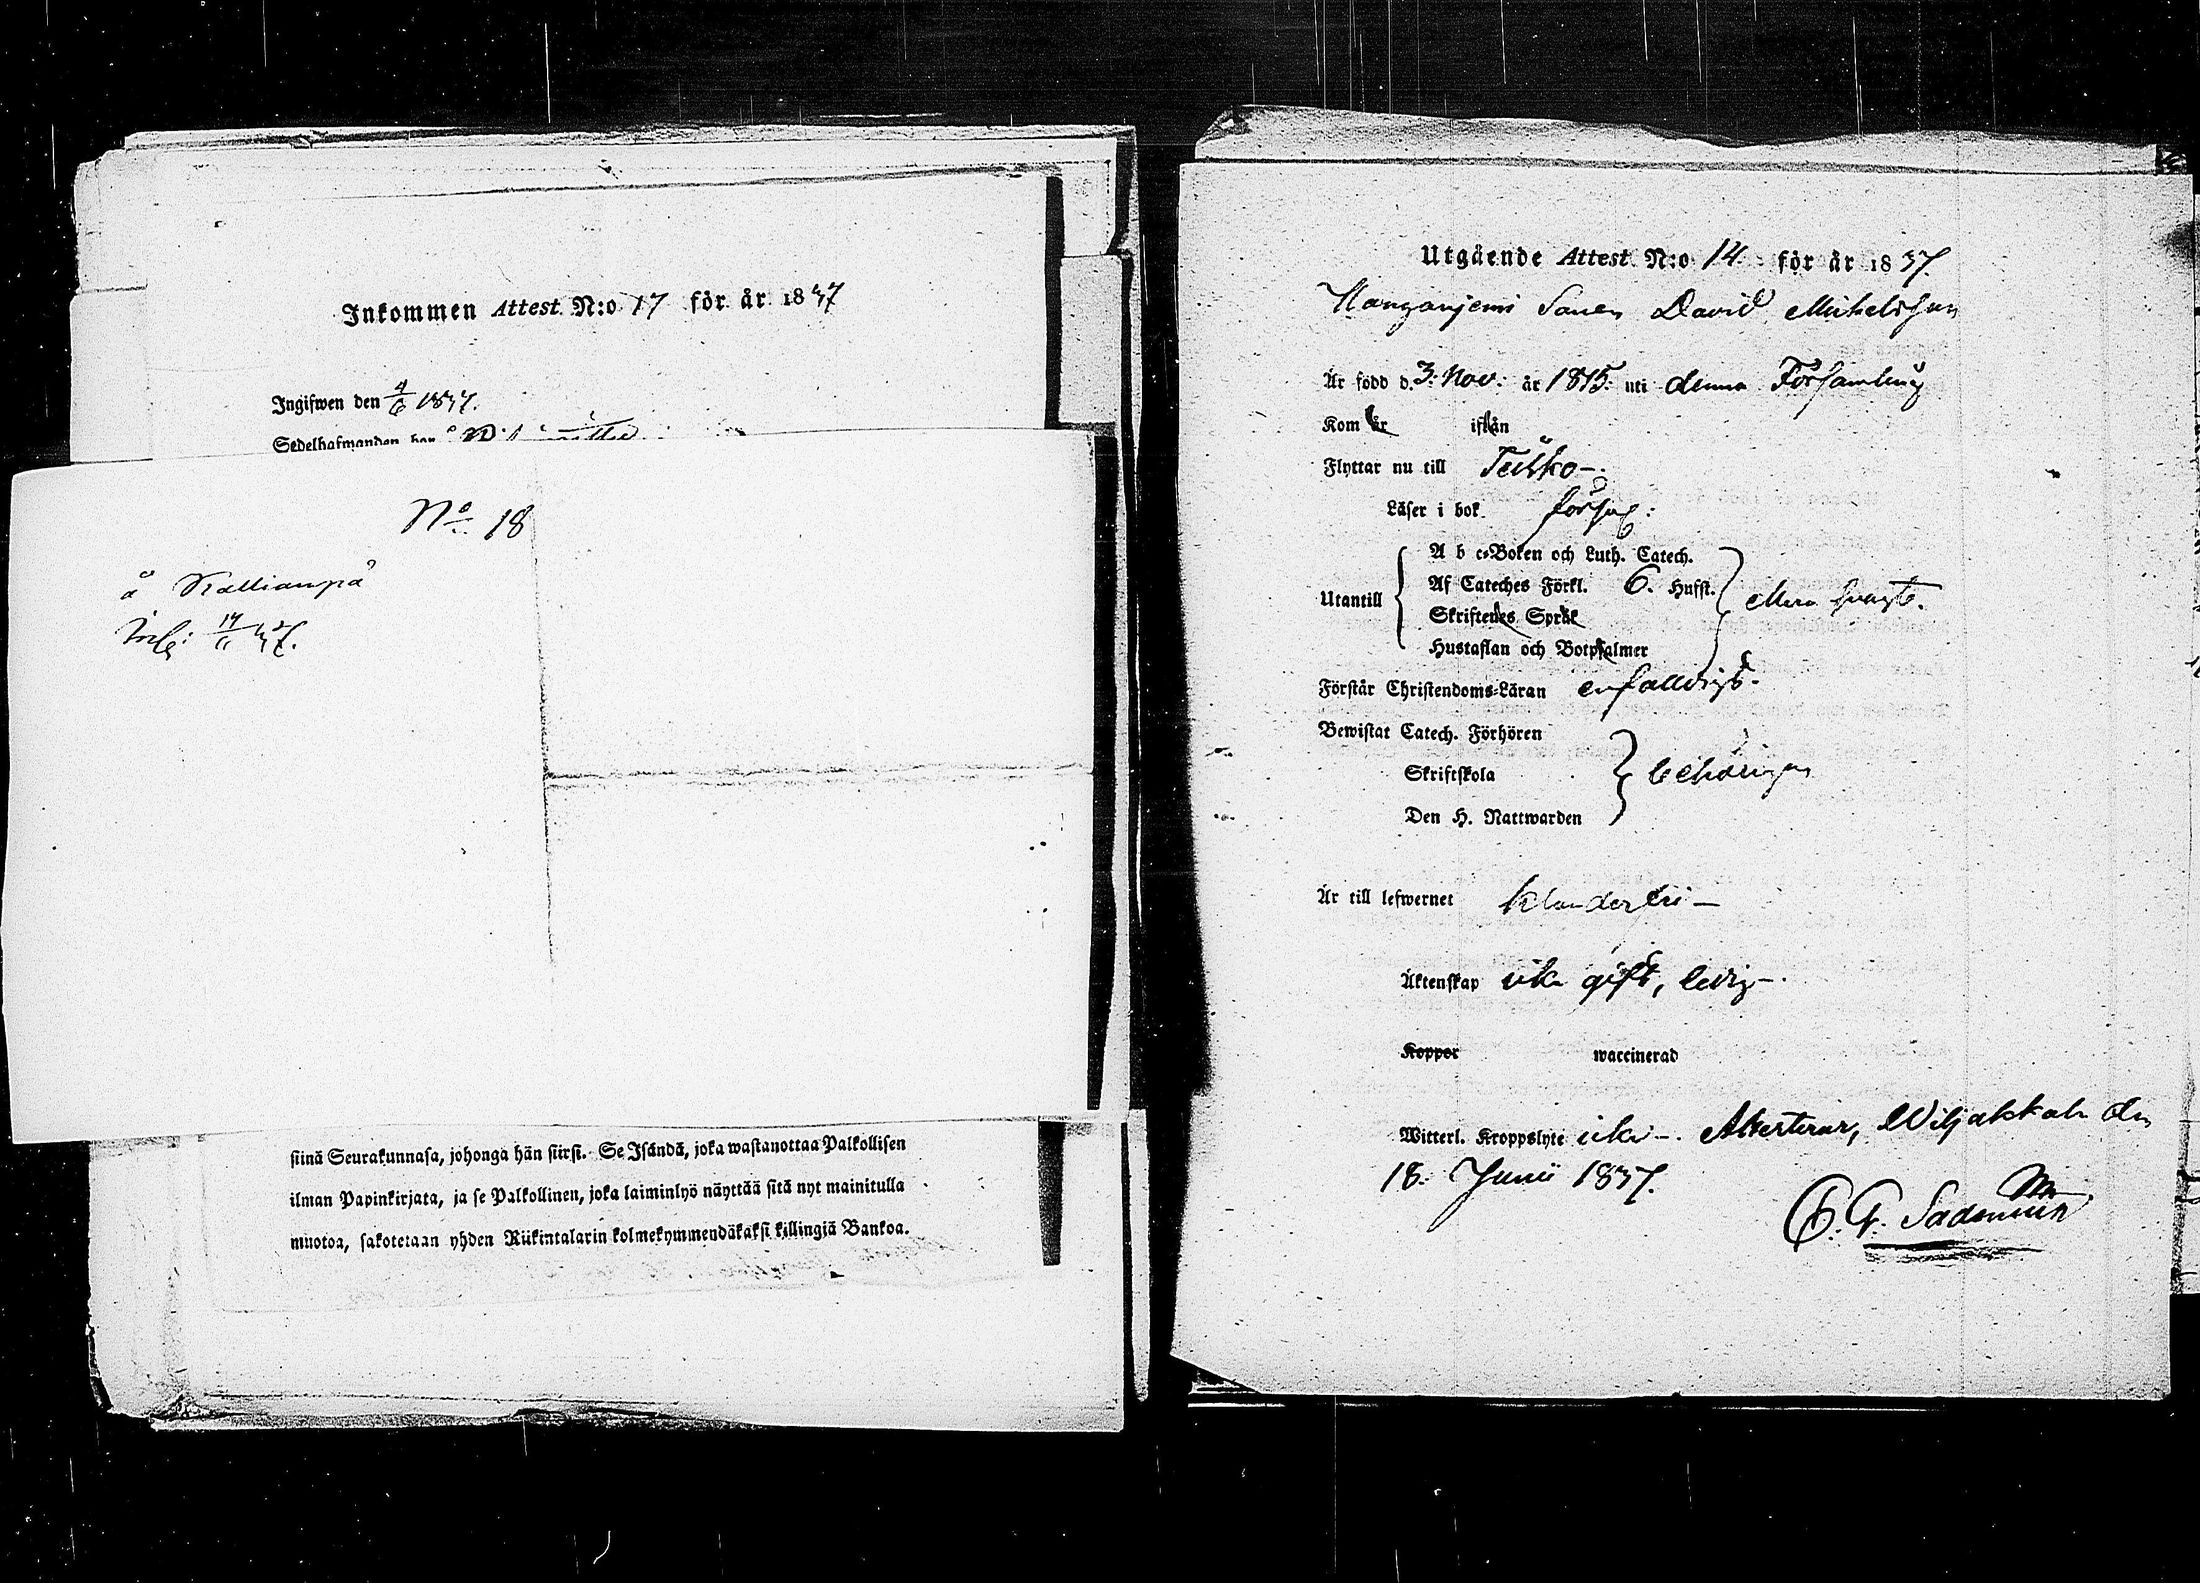 Inkommen Attest N:o 17 för år 1837
Ingifwen den 4/6 1837.
Sedelhafwanden har
No 18
å Kallianpä
stinä Seurakunnasa, johonga hän siirsi. Se Isändä, joka wastanottaa Palkollisen
ilman Papinkirjata, ja se Palkollinen, joka laiminlyö näyttää sitä nyt mainitulla
muotoa, sakotetaan yhden Riikintalarin kolmekymmendäkaksi killingiä Bankoa.
Utgående Attest N:o 14 för år 1837.
Hanganjemi Sonen David Michelsson
Är född d. 3. Nov. år 1815. uti denna Församling
Kom år ifrån
Flyttar nu till Teisko-.
Läser i bok försvl:
A b c-Boken och Luth. Catech.
Utantill Af Cateches Förkl. 6. Hufst.
Skriftenes Språk
Hustaflan och Botpsalmer
Förstår Christendoms-Läran enfalldigt.
Bewistat Catech. Förhören
Skriftskola behörigen
Den H. Nattwarden
Är till lefwernet klanderfri -
Äktenskap icke gift, ledig -.
Koppor waccinerad
Witterl. Kroppslyte icke -. Attesterar, Wiljakkala den
18. Junii 1837.